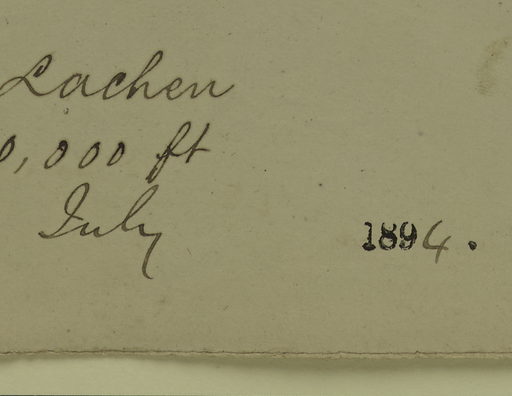 Lachen
0,000 ft
July
1894.